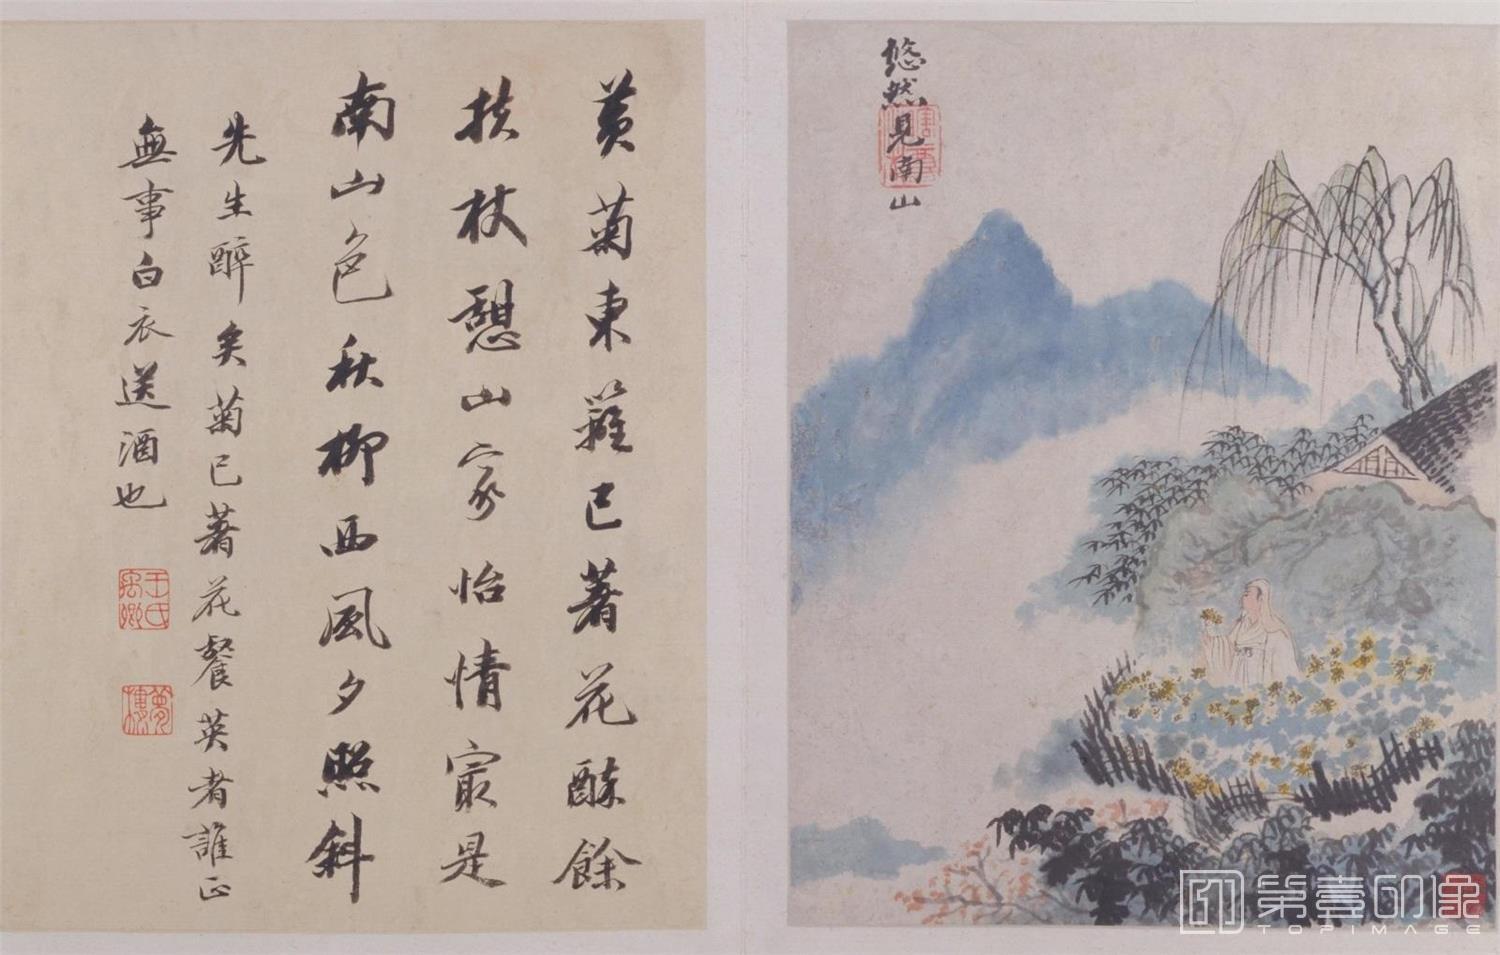 悠然見南山
黄菊東籬已著花餘
扶杖憩山家怡情㝡是
南山色秋柳西風夕照斜
先生醉矣菊已著花餐英者誰正
無事白衣送酒也
王氏禹卿
夢樓
第壹印像
TOPIMAGE